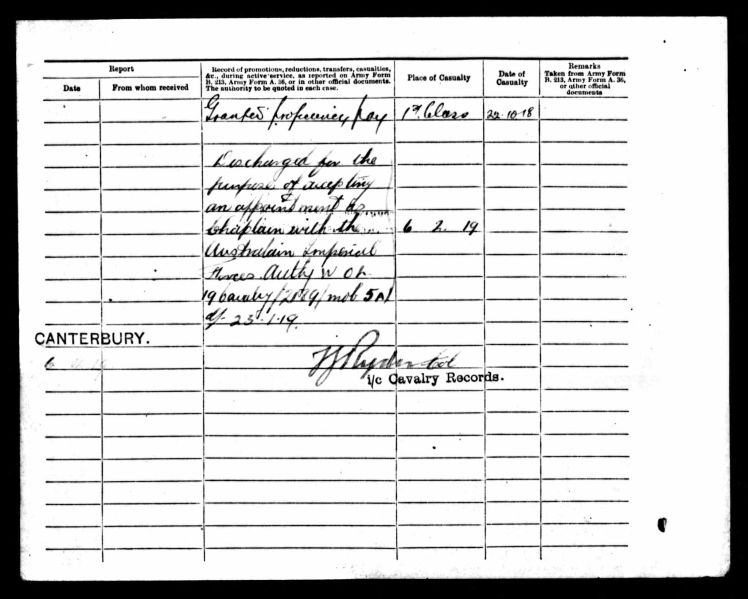 Report
Record of promotions, reductions, transfers, casualties,
&c., during active service, as reported on Army Form
B. 213, Army Form A. 36, or in other official documents.
The authority to be quoted in each case.
Place of Casualty
Date of
Casualty
Remarks
Taken from Army Form
B. 213, Army Form A. 36,
or other official
documents
Date
From whom received
Granted proficiency pay 1st Class 22.10.18
Discharged for the
purpose of accepting
an appointment as
Chaplain with the 6 2. 19
Australain Imperial
Forces Auth W O L
19 Cavalry/2189/mob 5A
d/- 23.1.19.
CANTERBURY.
6
Col
i/c Cavalry Records.